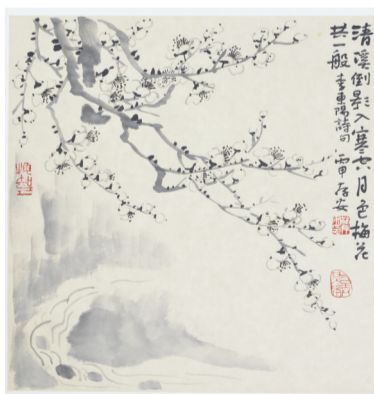 清溪倒影入寒空月色梅花
共一般 李東陽詩句 丙申 存安